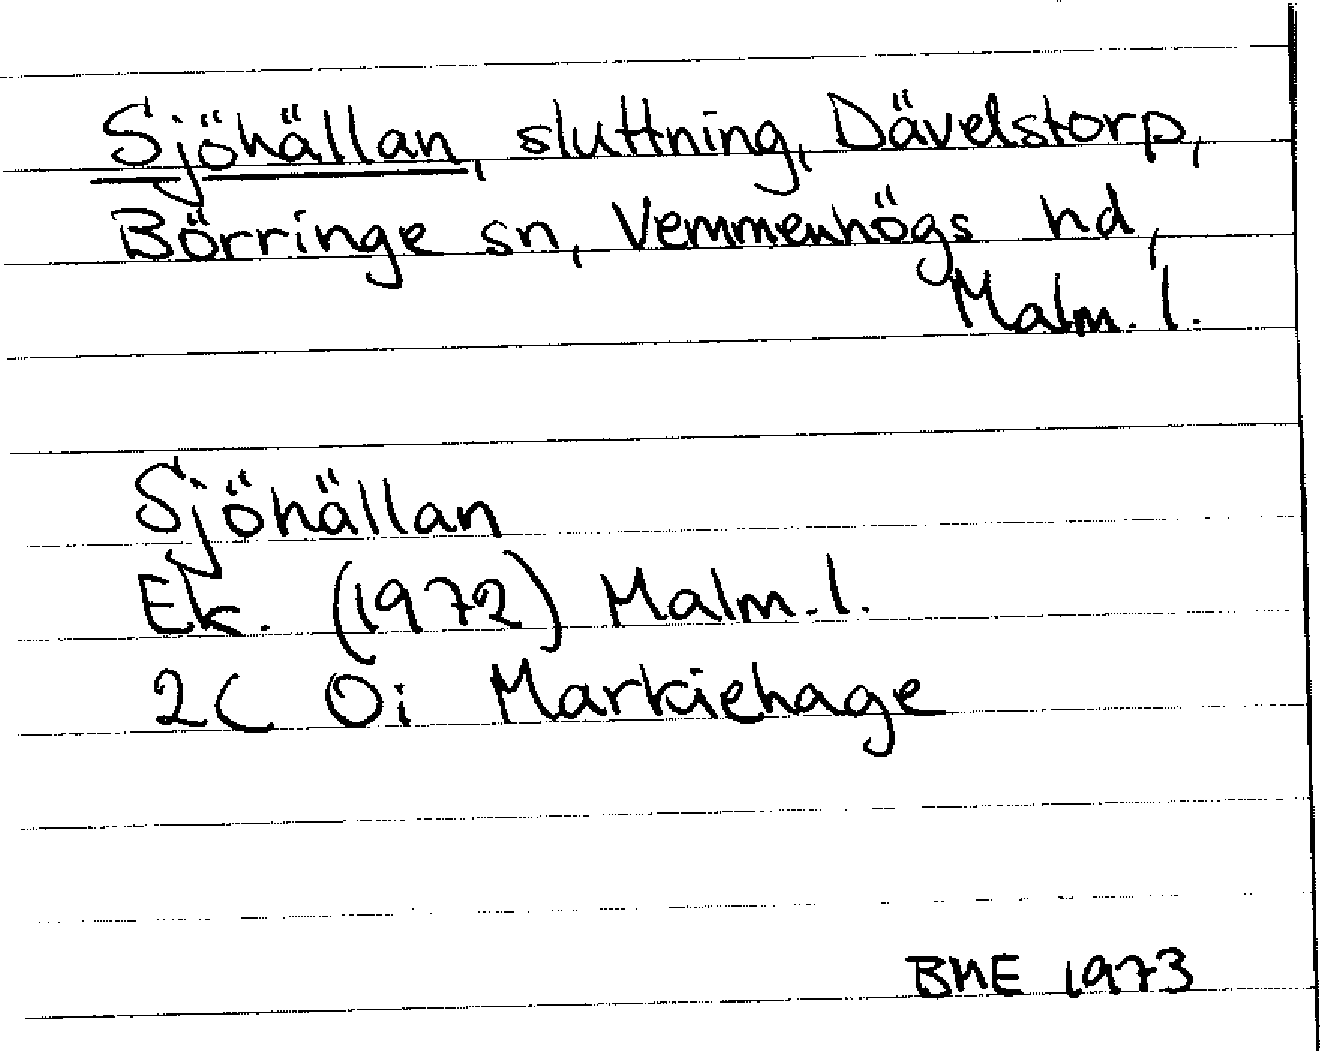 Sjöhällan, sluttning, Dävelstorp,
Börringe sn, Vemmenhögs hd,
Malm. l.
Sjöhällan
Ek. (1972) Malm. l.
2C 0i Markiehage
BME 1973